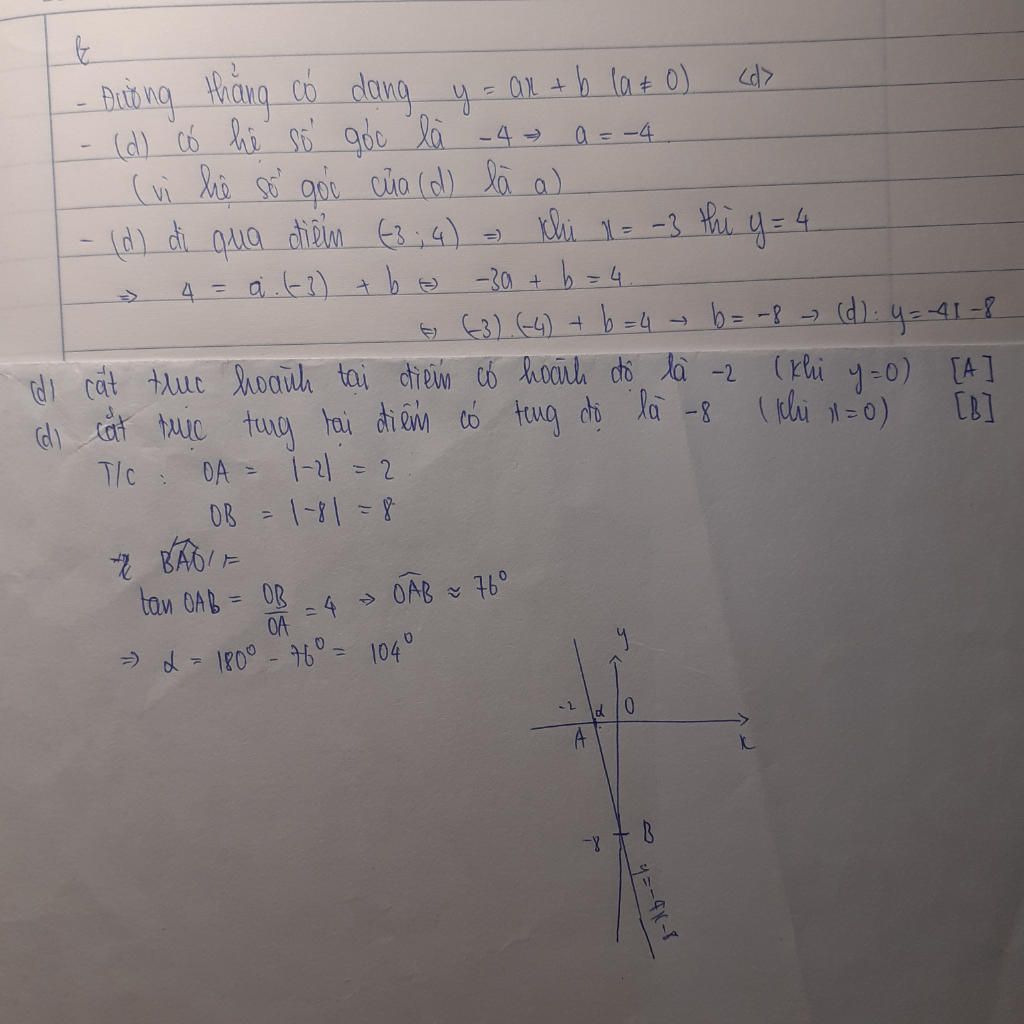 - Đường thẳng có dạng y = ax + b (a ≠ 0) <d>
- (d) có hệ số góc là -4 ⇒ a = -4
(vì hệ số góc của (d) là a)
- (d) đi qua điểm (-3 ; 4) ⇒ Khi x = -3 thì y = 4
⇒ 4 = a.(-3) + b ⇔ -3a + b = 4
⇔ (-3).(-4) + b = 4 → b = -8 → (d): y = -4x - 8
(d) cắt truc hoành tại điểm có hoành độ là -2 (Khi y=0) [A]
(d) cắt trục tung tại điểm có tung độ là -8 (Khi x=0) [B]
T/c : OA = |-2| = 2
OB = |-8| = 8
BAO =
tan OAB = OB/OA = 4 ⇒ OAB ≈ 76°
⇒ α = 180° - 76° = 104°
y
-2 α O
A x
-8 B
y = -4x - 8